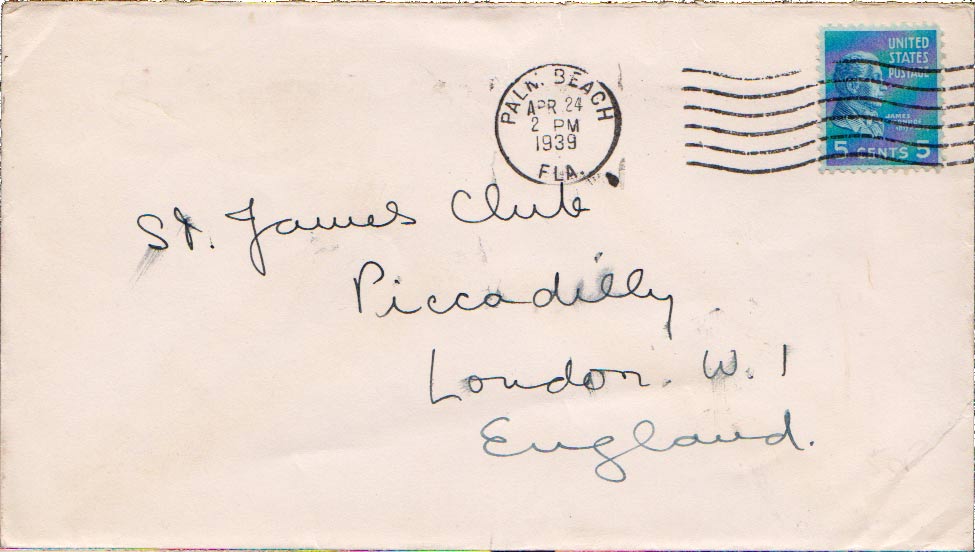 PALM BEACH
APR 24
2 PM
1939
FLA.
UNITED
STATES
POSTAGE
JAMES
5 CENTS 5
St. James Club
Piccadilly
London. W. 1
England.